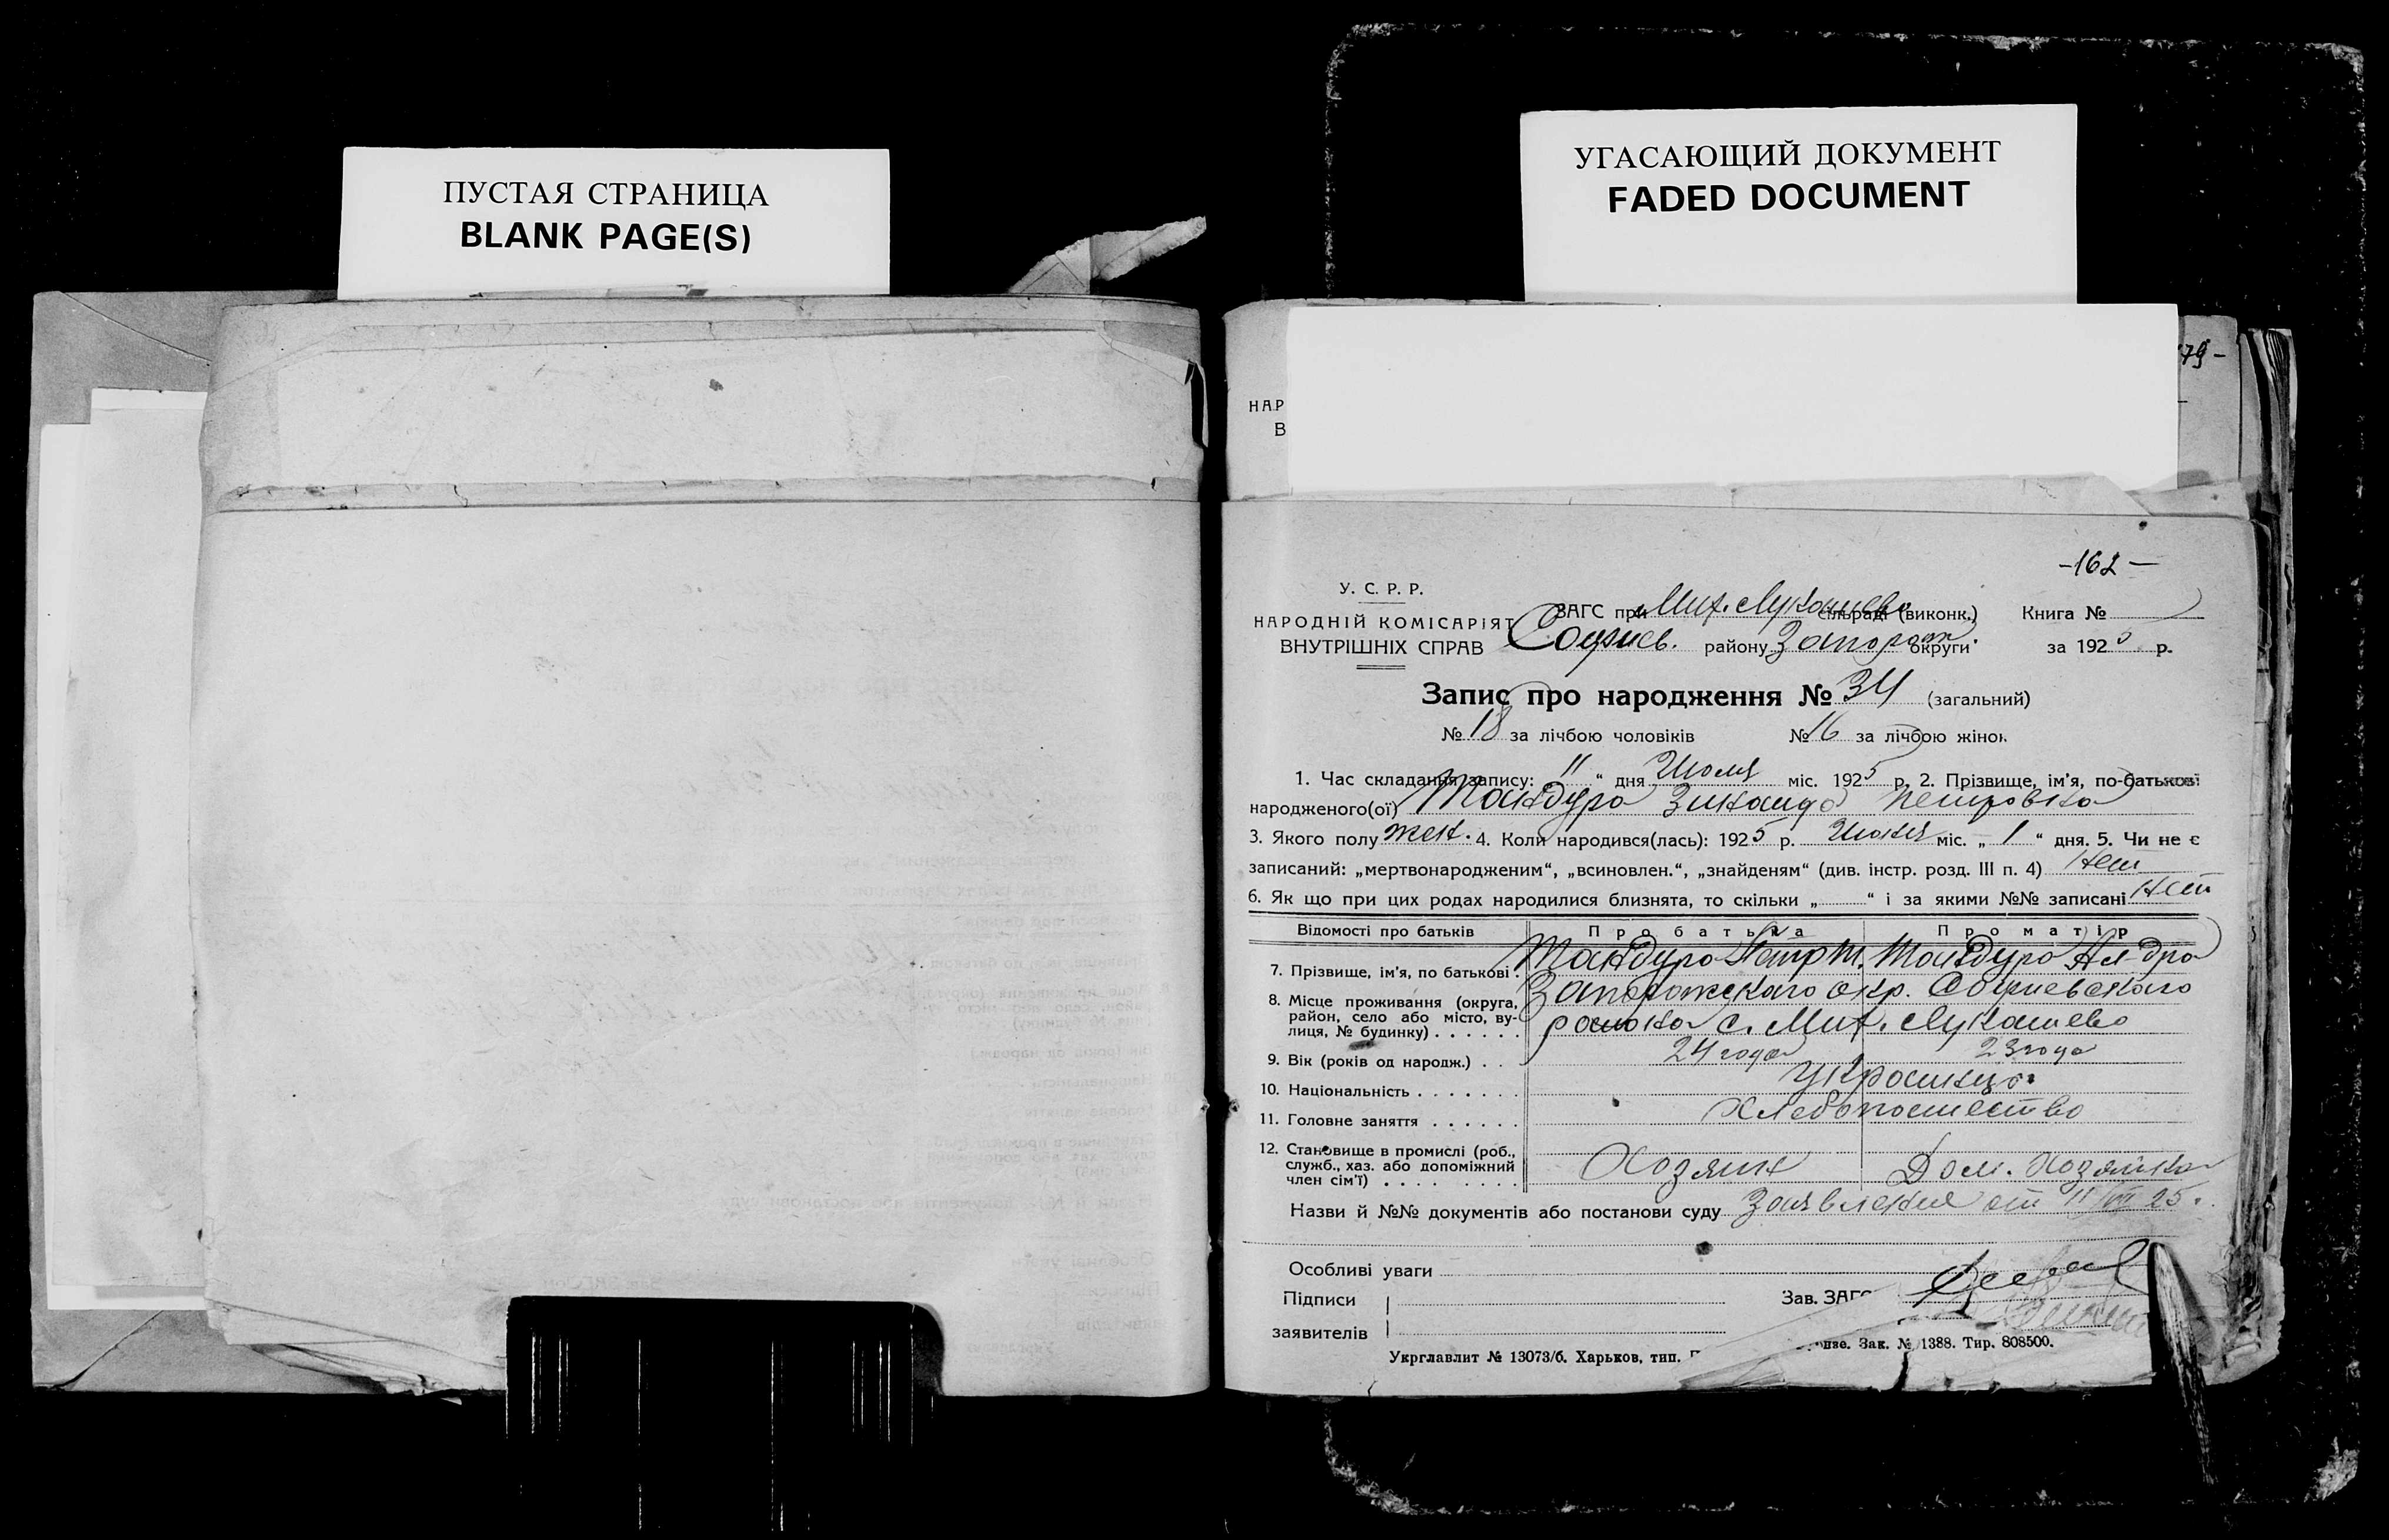 ПУСТАЯ СТРАНИЦА
BLANK PAGE(S)
УГАСАЮЩИЙ ДОКУМЕНТ
FADED DOCUMENT
79-
НАР
В
-162-
У. С. Р. Р.
НАРОДНІЙ КОМІСАРІЯТ
ВНУТРІШНІХ СПРАВ
ЗАГС при Мих. Лукашево сільраді (виконк.) Книга №
Софиев. району Запорож. округи за 1925 р.
Запис про народження № 34 (загальний)
№ 18 за лічбою чоловіків № 16 за лічбою жінок
1. Час складання запису: 11 “ дня Июля міс. 1925 р. 2. Прізвище, ім'я, по-батькові
народженого(ої) Мандура Зинаида Петровна
3. Якого полу жен. 4. Коли народився(лась): 1925 р. Июля міс. „ 1 “ дня. 5. Чи не є
записаний: „мертвонародженим“, „всиновлен.“, „знайденям“ (див. інстр. розд. III п. 4) Нет
6. Як що при цих родах народилися близнята, то скільки „ “ і за якими №№ записані Нет
Відомості про батьків Про батька Про матір
7. Прізвище, ім'я, по батькові. Мандура Петр М. Мандура Ал-дра
8. Місце проживання (округа, район, село або місто, вулиця, № будинку) Запорожского окр. Софиевского
района с. Мих. Лукашево
9. Вік (років од народж.) 24 года 23 года
10. Національність Украинцы
11. Головне заняття Хлебопашество
12. Становище в промислі (роб., служб., хаз. або допоміжний член сім'ї) Хозяин Дом. хозяйка
Назви й №№ документів або постанови суду Заявление от 11/VII 25.
Особливі уваги
Підписи Зав. ЗАГС
заявителів
Укрглавлит № 13073/б. Харьков, тип. Зак. № 1388. Тир. 808500.